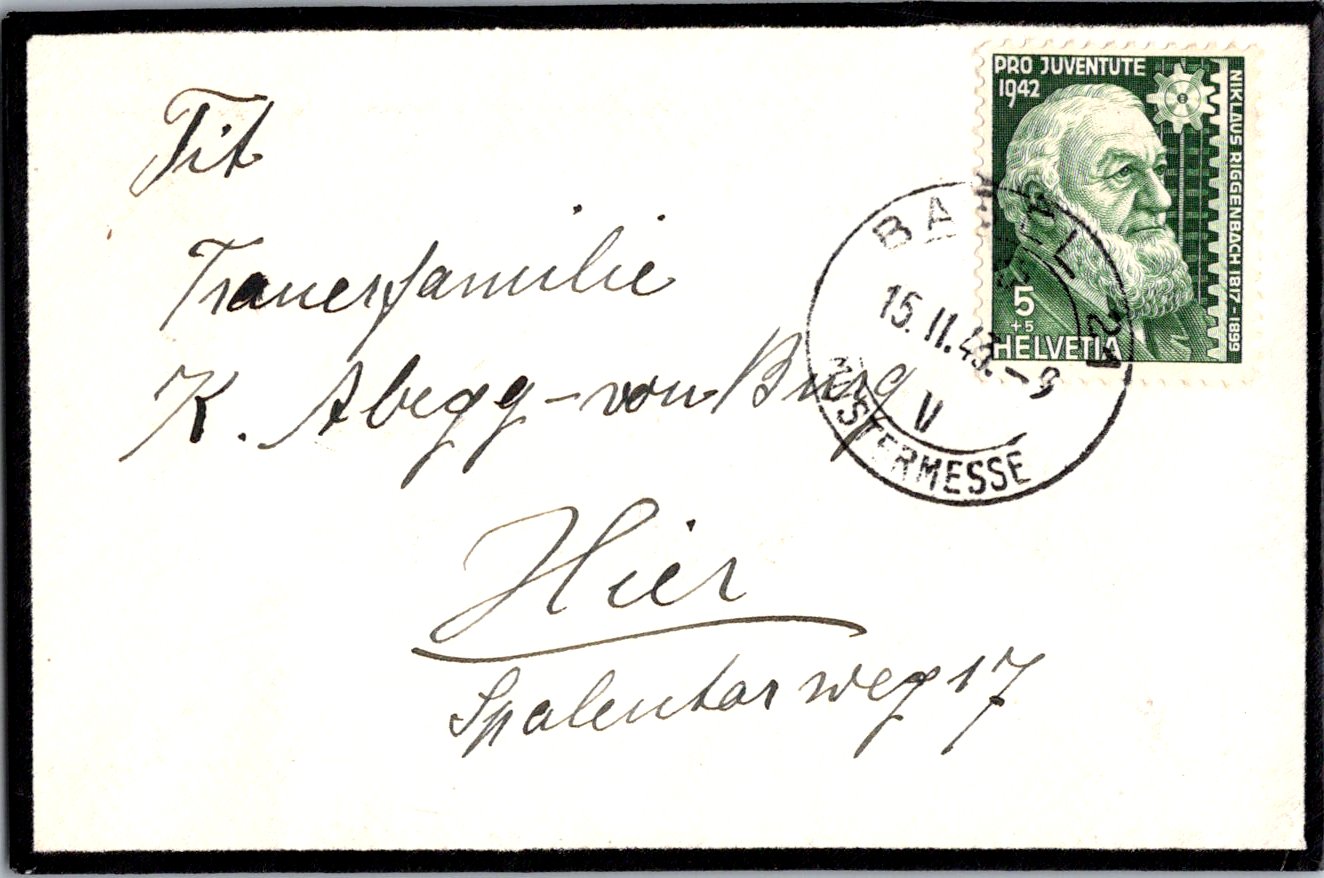 PRO JUVENTUTE
1942
NIKLAUS RIGGENBACH 1817-1899
5
+5
HELVETIA
BASEL 21
15.II.43.-9
V
MUSTERMESSE
Tit
Trauerfamilie
K. Abegg-von Burg
Hier
Spalentorweg 17